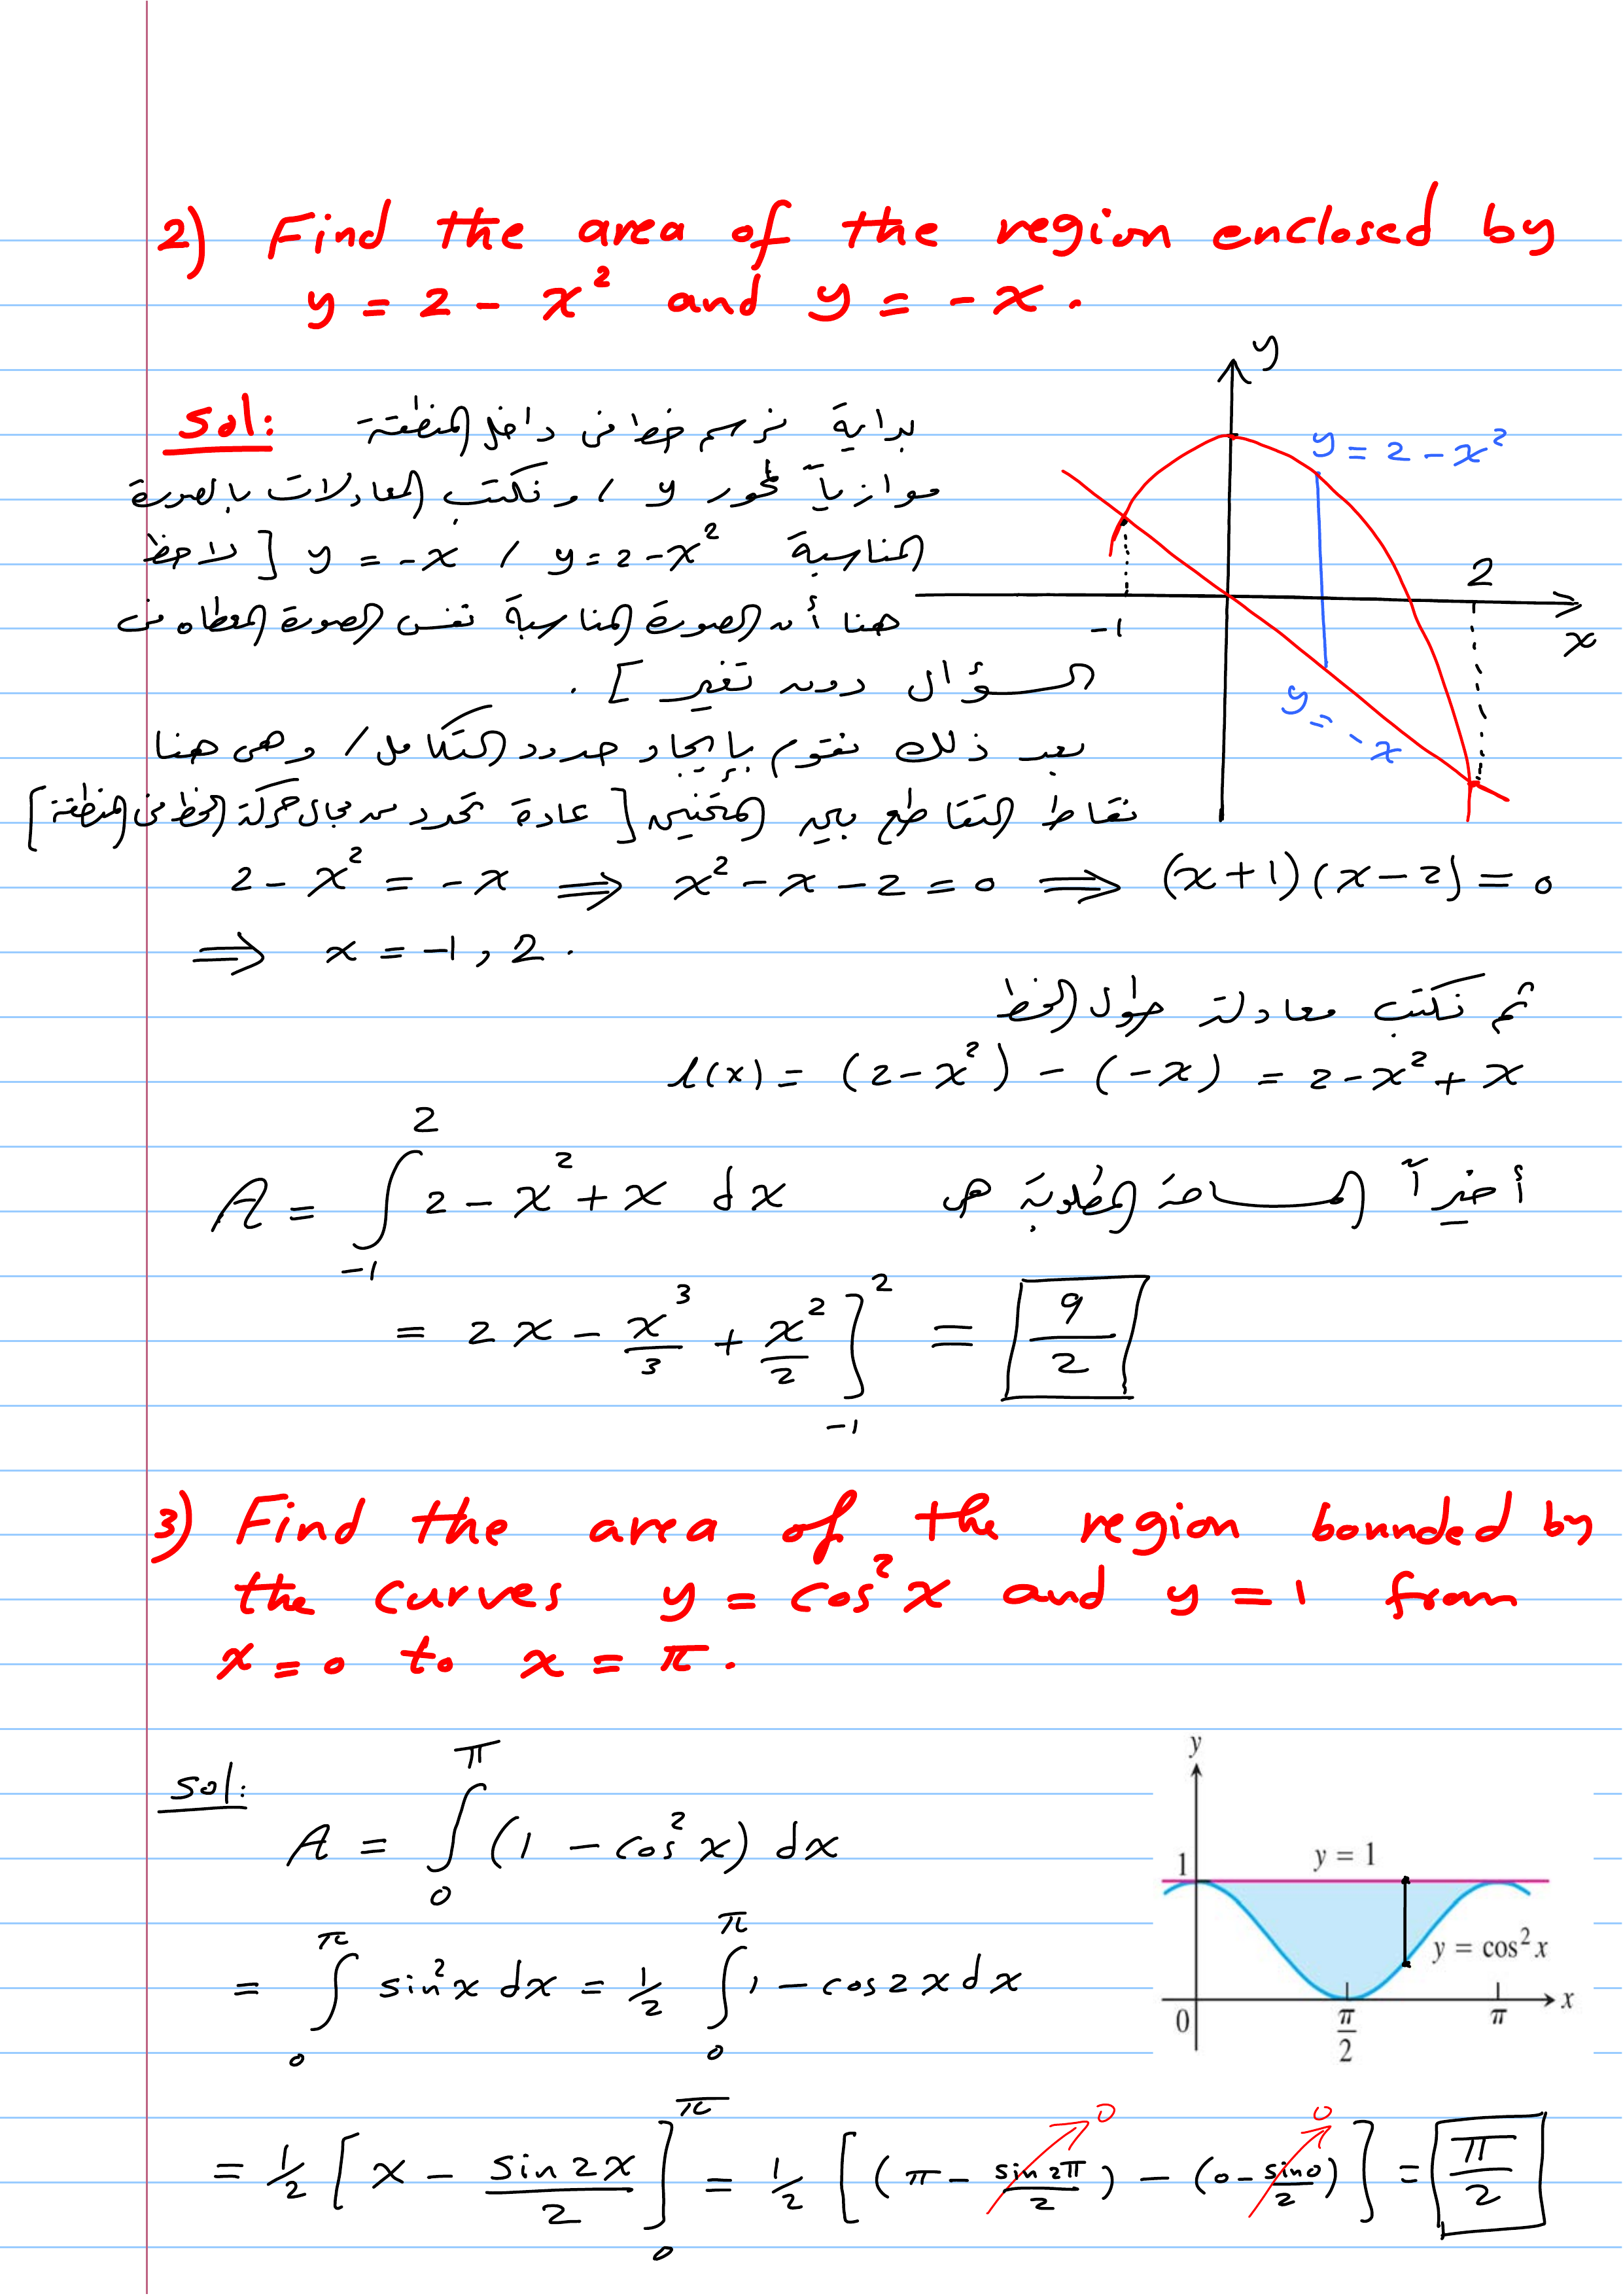 2) Find the area of the region enclosed by
y = 2 - x² and y = -x .
Sol:
بداية نرسم خط في داخل المنطقة
موازياً لمحور y ، ونكتب المعادلات بالصورة
المناسبة y = 2 - x² ، y = -x [ لاحظ
هنا أن الصورة المناسبة نفس الصورة المعطاه في
السؤال دون تغير ] .
بعد ذلك نقوم بإيجاد حدود التكامل ، وهي هنا
نقاط التقاطع بين المنحنيين [ عادة تحدد من مجال حركة الخط في المنطقة ]
y
y = 2 - x²
2
x
-1
y = -x
2 - x² = -x ⟹ x² - x - 2 = 0 ⟹ (x+1)(x-2) = 0
⟹ x = -1 , 2 .
ثم نكتب معادلة طول الخط
l(x) = (2 - x²) - (-x) = 2 - x² + x
أخيراً المساحة المطلوبة هي
A = ∫_{-1}^{2} 2 - x² + x dx
= 2x - x³/3 + x²/2 ]_{-1}^{2} = 9/2
3) Find the area of the region bounded by
the curves y = cos²x and y = 1 from
x = 0 to x = π .
Sol:
A = ∫_{0}^{π} (1 - cos²x) dx
= ∫_{0}^{π} sin²x dx = 1/2 ∫_{0}^{π} 1 - cos2x dx
y
1
y = 1
y = cos² x
0
π/2
π
x
= 1/2 [ x - sin2x/2 ]_{0}^{π} = 1/2 [ (π - sin2π/2) - (0 - sin0/2) ] = π/2
0
0